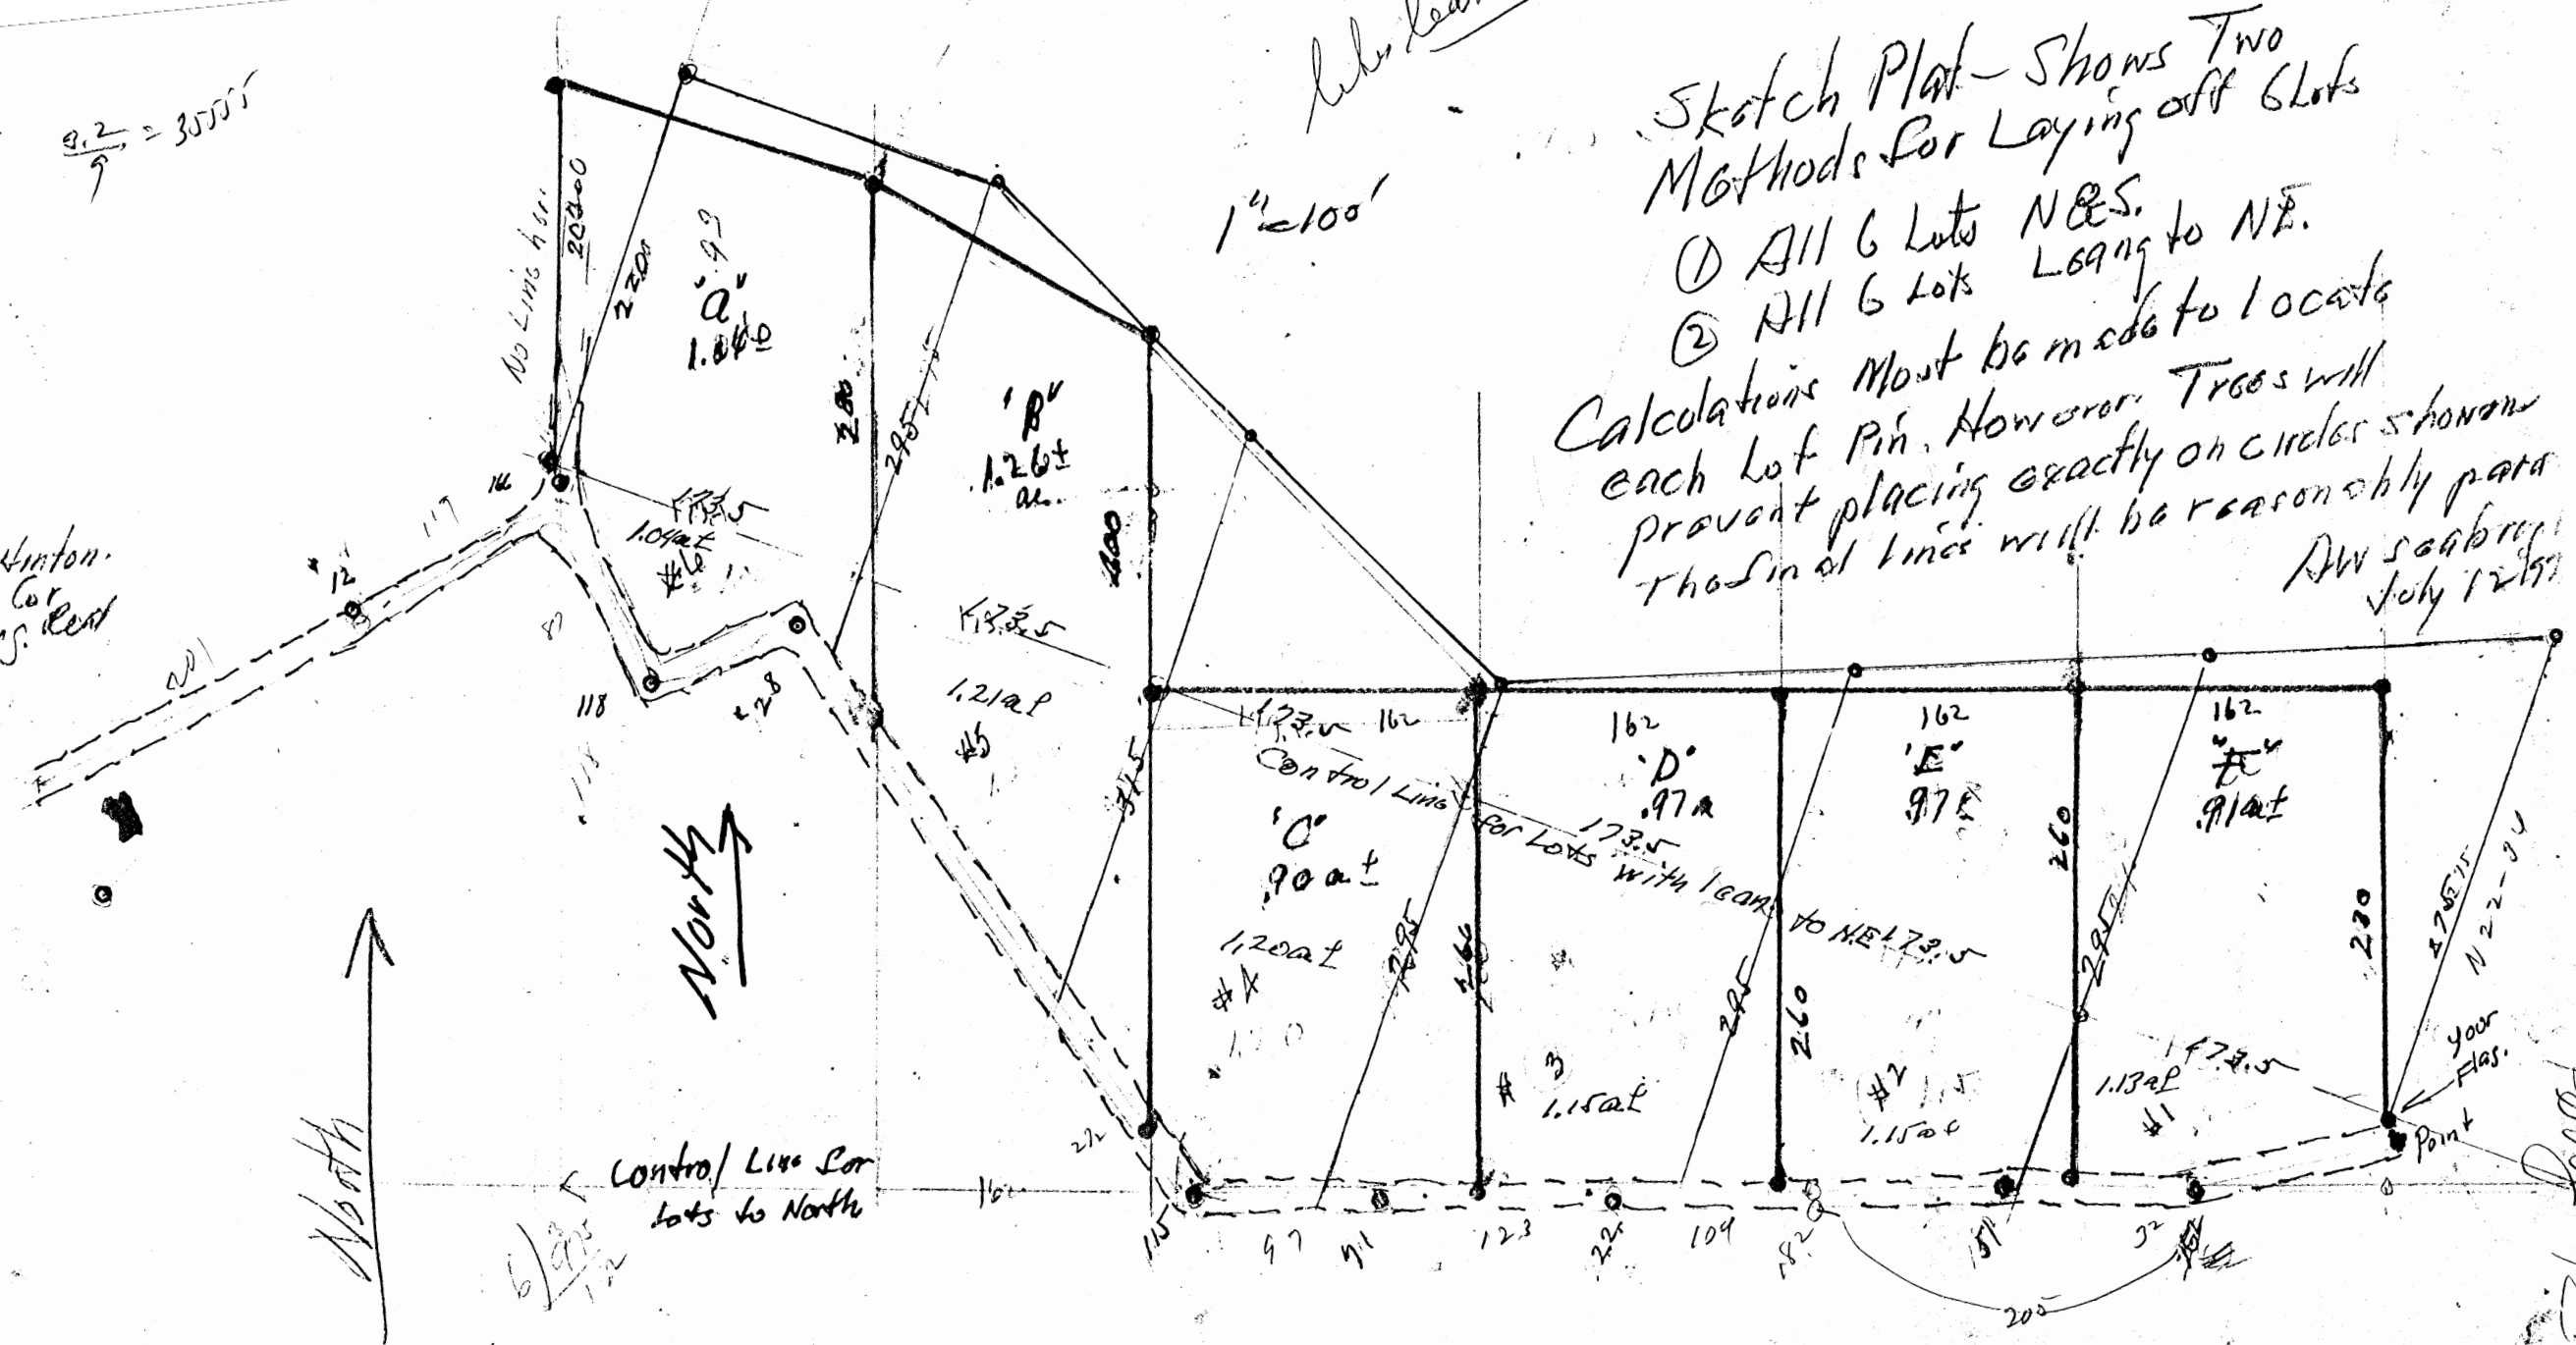 Sketch Plat - Shows Two
Methods for Laying off 6 Lots
① All 6 Lots N&S.
② All 6 Lots Leang to NE.
Calculations Must be made to locate
each Lot Pin. However. Trees will
prevent placing exactly on circles shown
The final lines will be reasonably para
AW Seabro
July 12
1"=100'
No Line here
200
220
"a"
.93
1.04±
280
295
"B"
1.26±
ac.
400
173.5
1.04a±
#6
119
12
201
Hinton.
Cor
118
118
87
28
173.5
1.21a±
#5
315
173.5
162
162
162
162
Control Line for Lots with lean to N.E
173.5
173.5
"C"
.90a±
1.20a±
#4
"D"
.97a
"E"
.97±
.91a±
295
260
295
260
260
295
230
N22-34
# 3
1.15a±
#2
1.15a±
173.5
1.13a±
#1
your
Flag.
Point
North
North
Control Line for
Lots to North
162
212
115
97
71
123
22
109
82
51
32
205